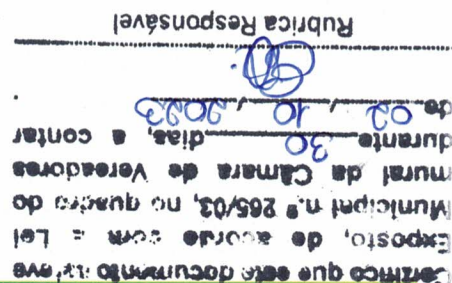 Certifico que este documento esteve
Exposto, de acordo com a Lei
Municipal n.º 265/03, no quadro do
mural da Câmara de Vereadores
durante 30 dias, a contar
de 02 / 10 / 2023 .
Rubrica Responsável